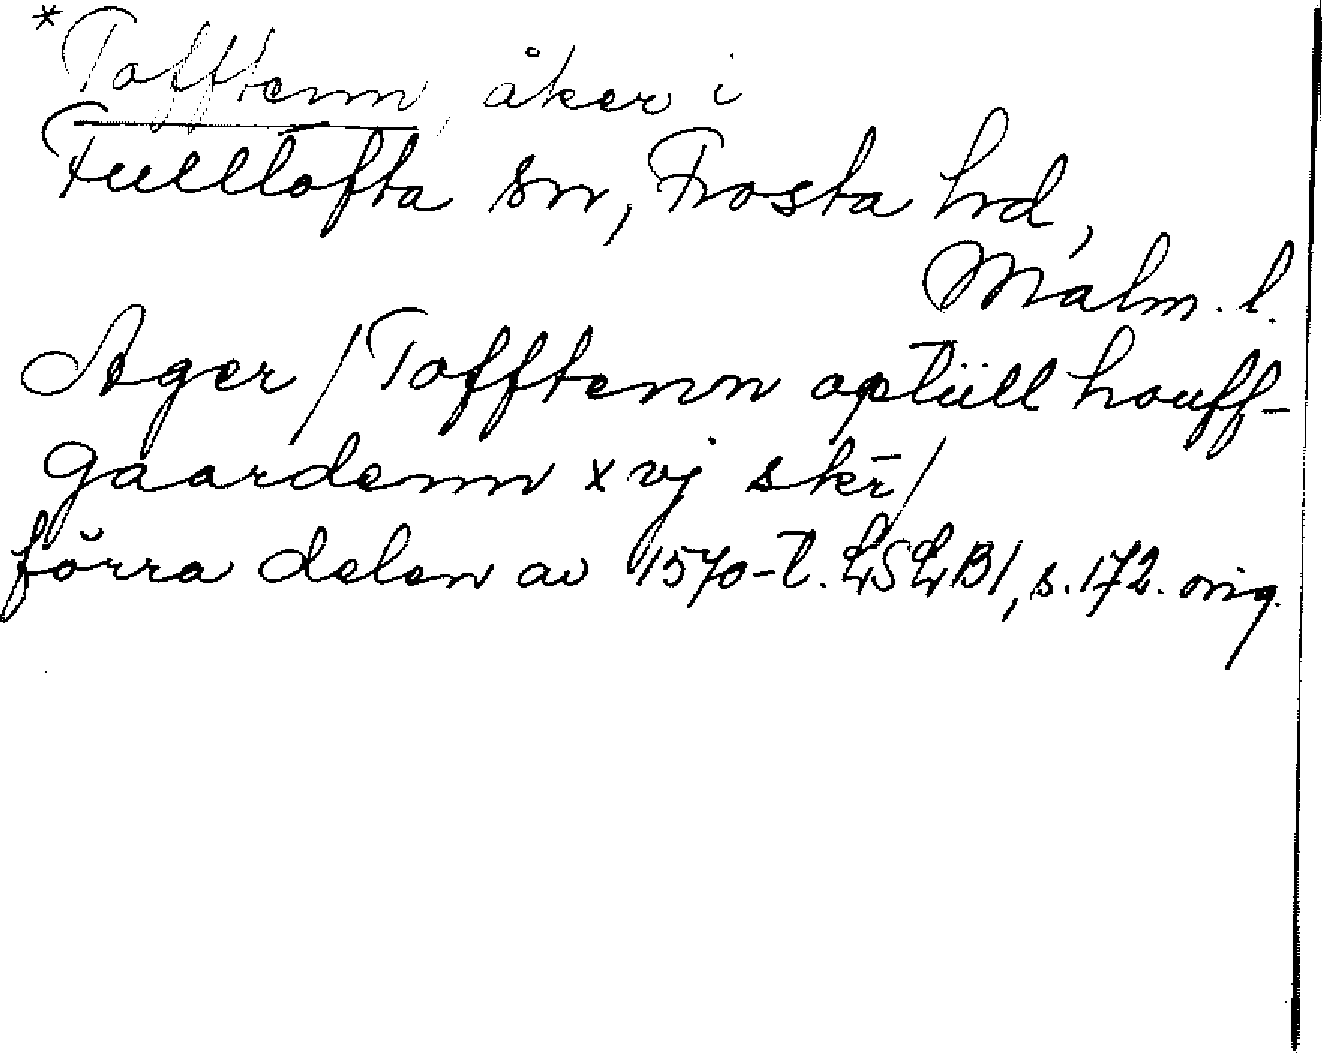 *Tofftenn, åker i
Fulltofta sn, Frosta hrd,
Malm. l.
Ager / Tofftenn optüll houff-
gaardenn xvj skr̄ /
förra delen av 1570-t. LSLB1, s. 172. orig.